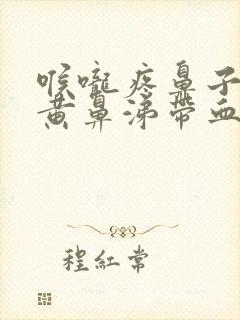 喉嚨疼鼻子
黃鼻涕帶血
程紅常